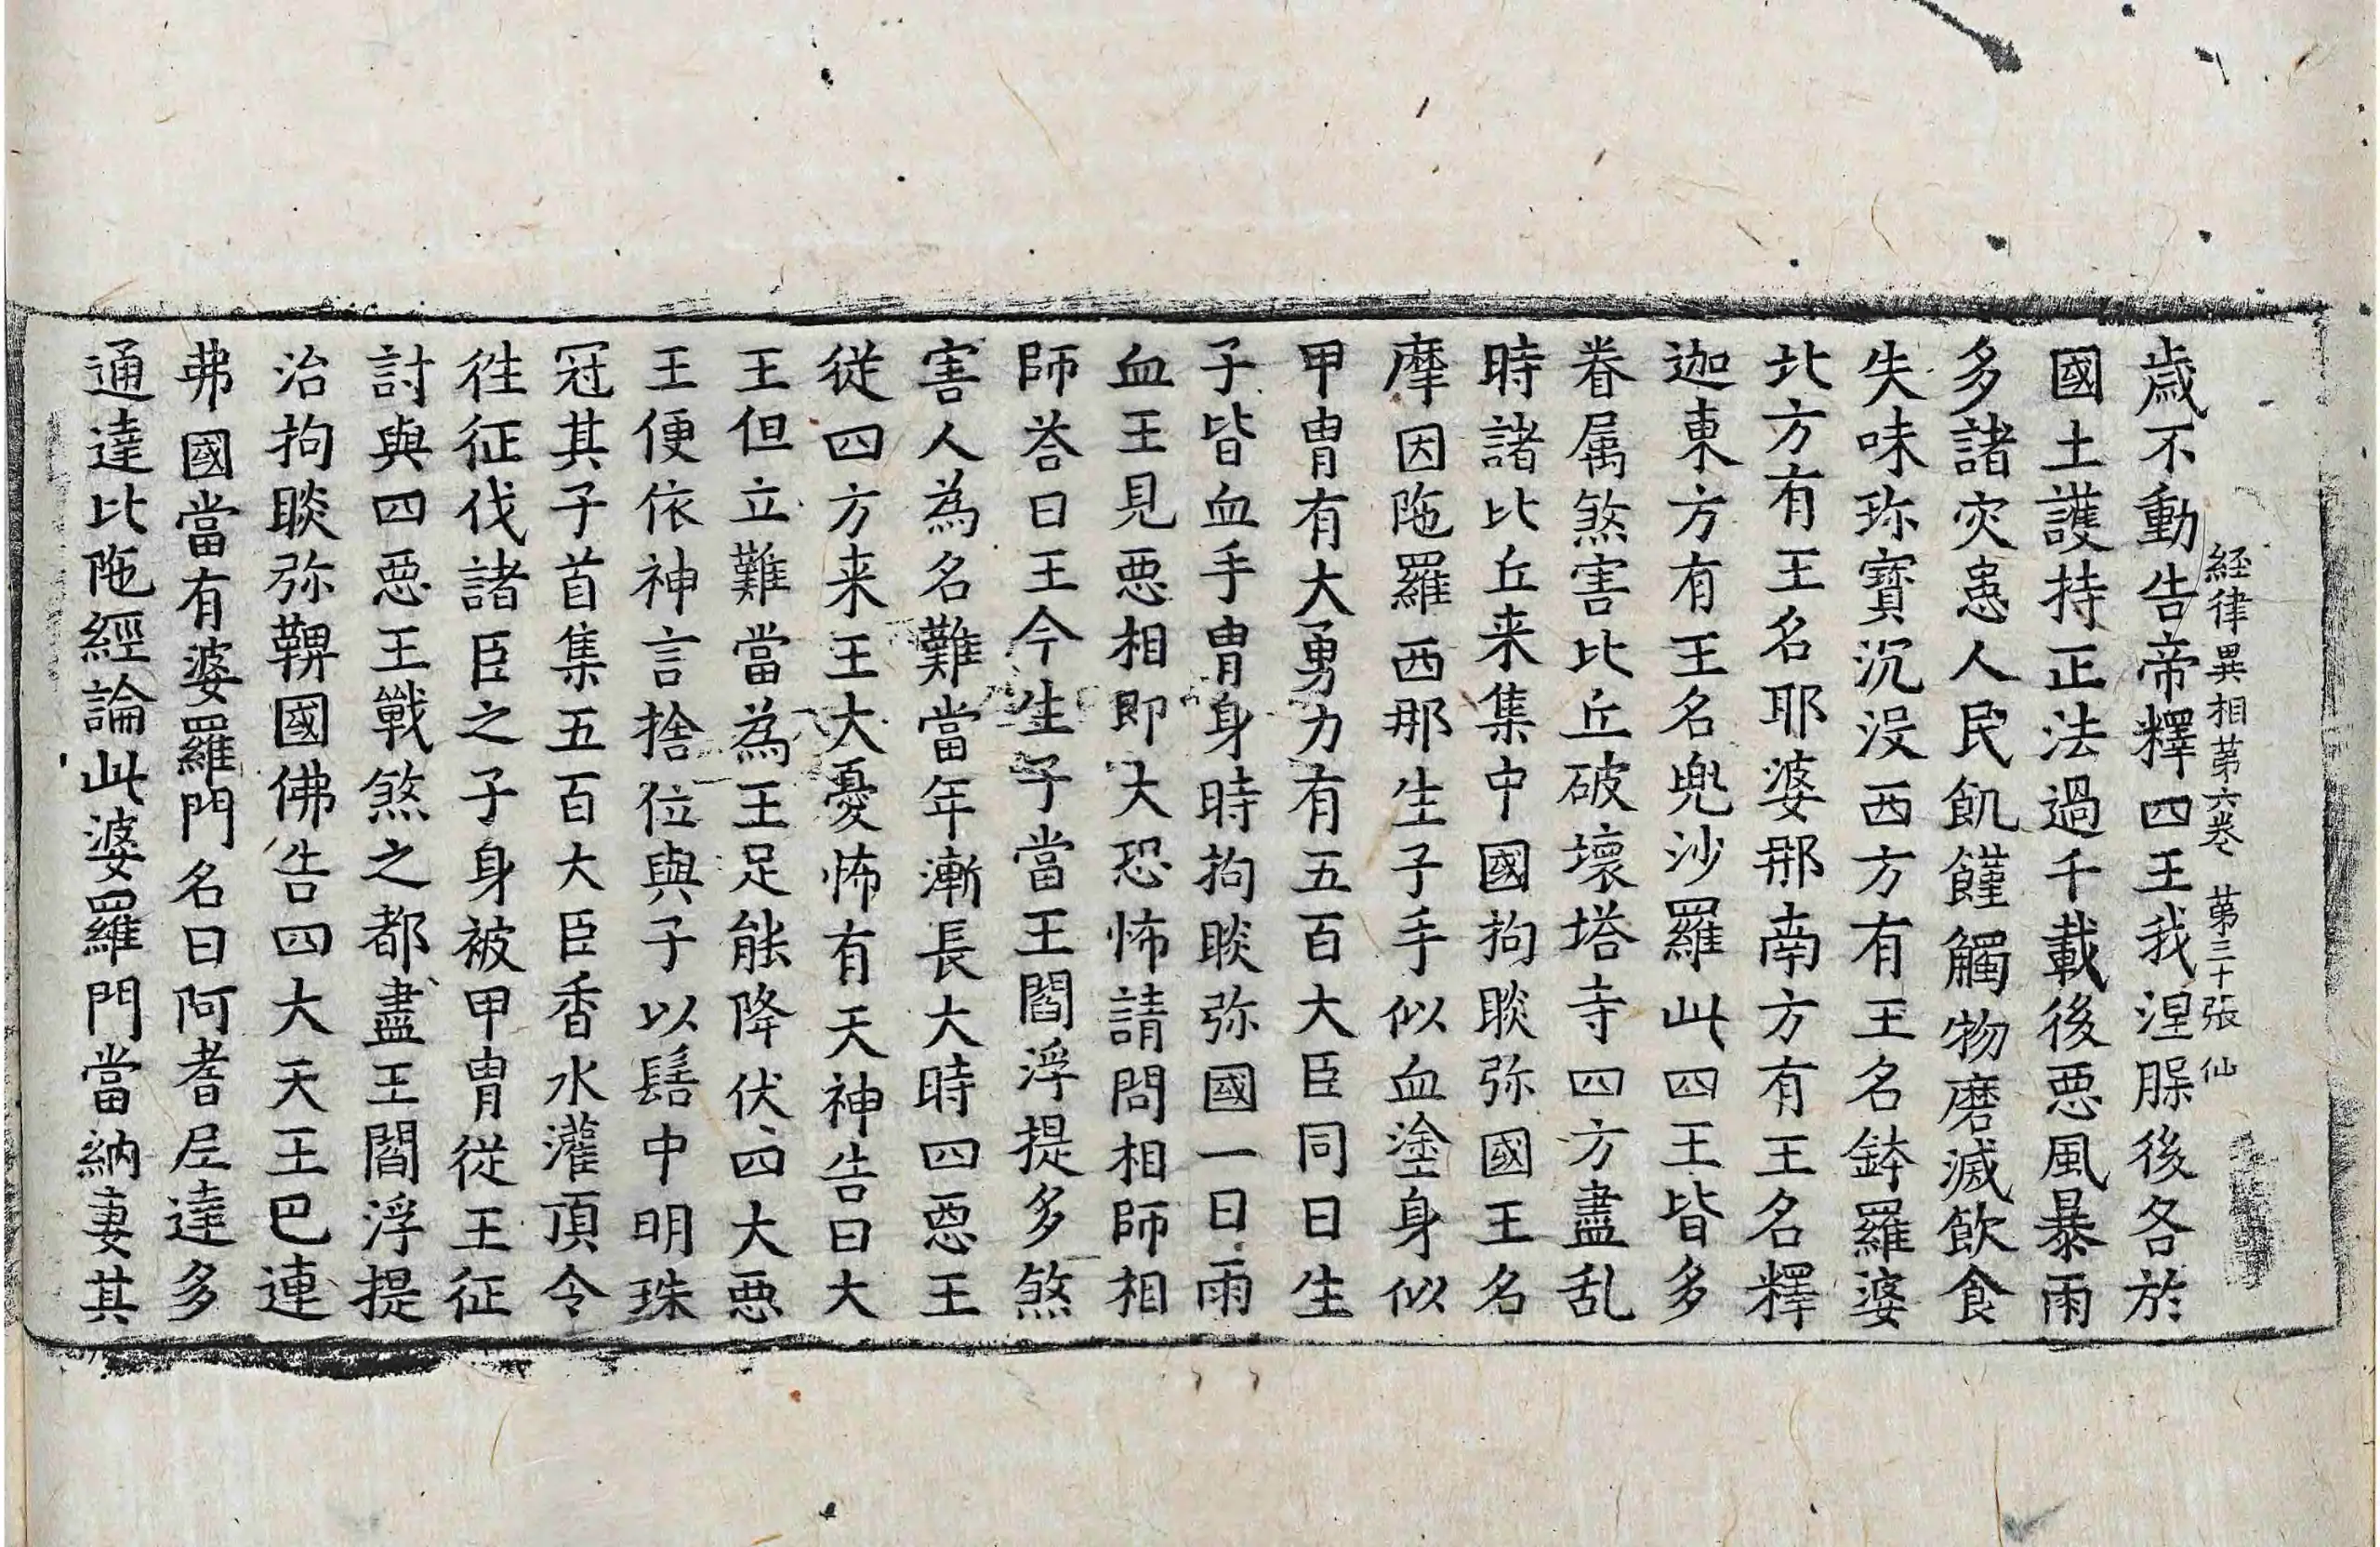 経律異相苐六卷 苐三十張 仙
歳不動告帝釋四王我涅脲後各於
國土護持正法過千載後悪風暴雨
多諸灾恚人民飢饉觸物磨滅飲食
失味珎寶沉没西方有王名鉢羅婆
北方有王名耶婆那南方有王名釋
迦東方有王名兜沙羅此四王皆多
眷属煞害比丘破壞塔寺四方盡乱
時諸比丘来集中國拘睒弥國王名
摩因陁羅西那生子手似血塗身似
甲冑有大勇力有五百大臣同日生
子皆血手冑身時拘睒弥國一日雨
血王見悪相即大恐怖請問相師相
師荅曰王今生子當王閻浮提多煞
害人為名難當年漸長大時四悪王
従四方来王大憂怖有天神告曰大
王但立難當為王足能降伏四大悪
王便依神言捨位與子以髻中明珠
冠其子首集五百大臣香水灌頂令
徃征伐諸臣之子身被甲冑従王征
討與四悪王戰煞之都盡王閻浮提
治拘睒弥鞞國佛告四大天王巴連
弗國當有婆羅門名曰阿耆尼達多
通達比陁經論此婆羅門當納妻其